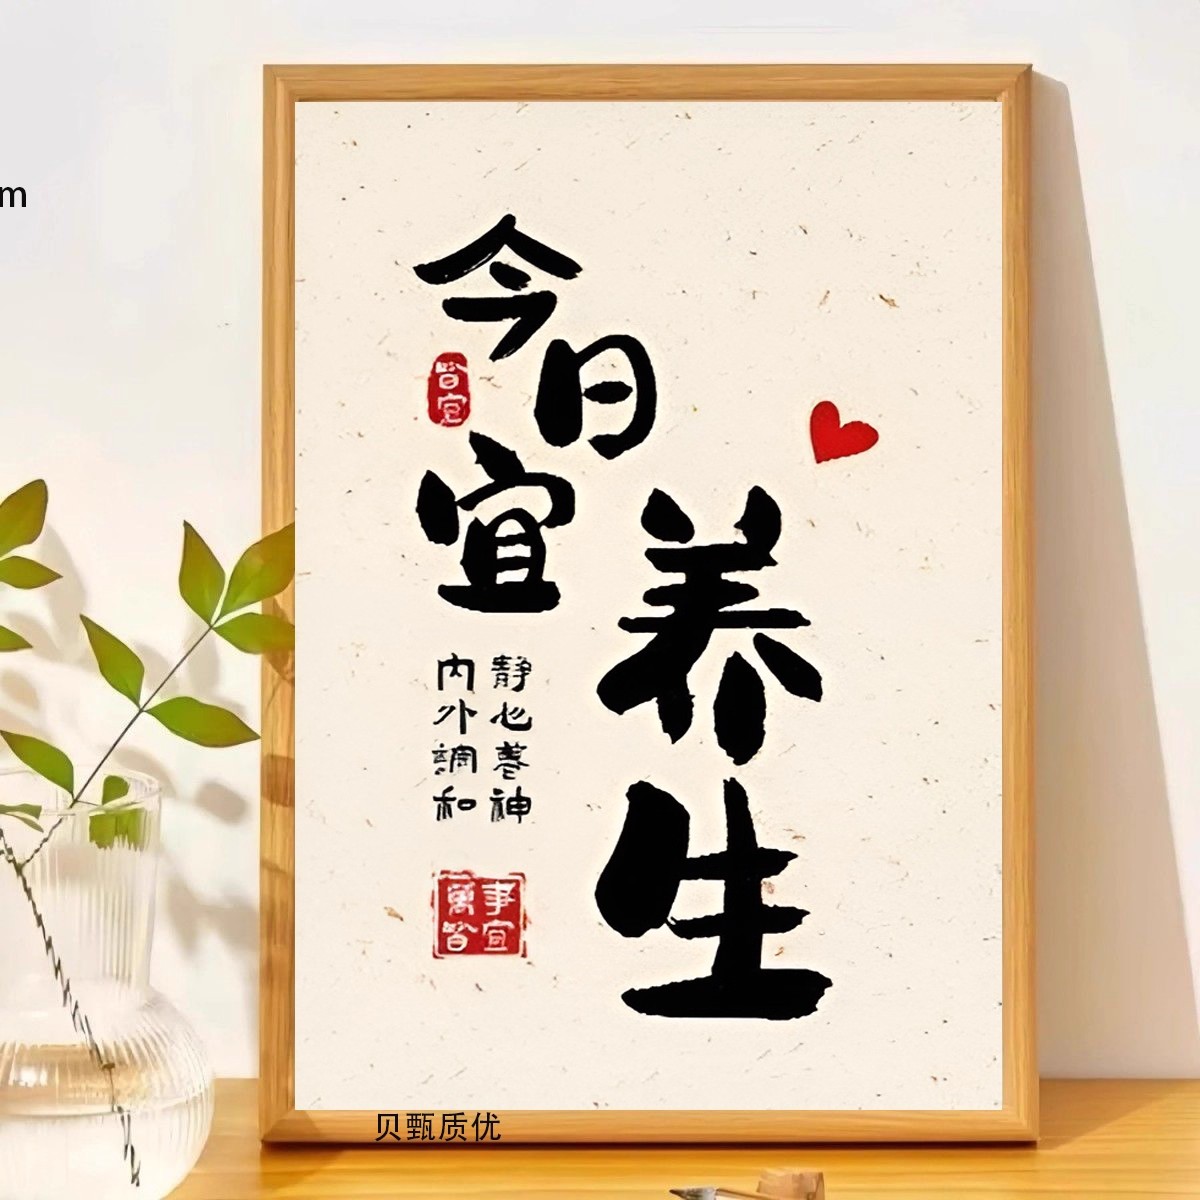 m
今日
皆宜
宜
养生
静心养神
内外調和
萬事皆宜
贝甄质优